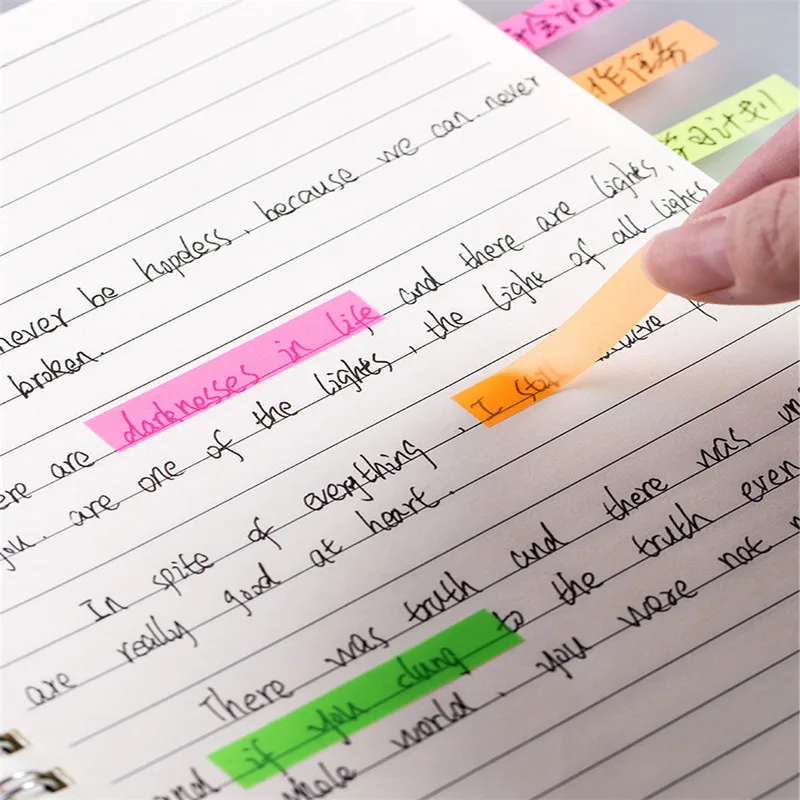 会计划
作任务
学习计划
never be hopeless, because we can never
broken.
ere are darknesses in life and there are lights,
you, are one of the lights, the light of all lights
In spite of everything, I still
are really good at heart.
There was truth and there was un
and if you clung to the truth even
whole world, you were not